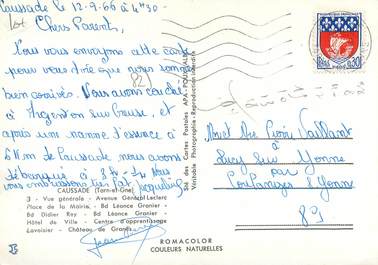 Caussade le 12-9-66 à 4h30
Lot
Chers Parents,
Nous vous envoyons cette carte
pour vous dire que nous sommes
bien arrivés. Nous avons couché
(82)
à Argenton sur Creuse, et
après une panne d'essence à
5 km de Caussade nous avons
débarqué à
vous embrassons très fort
CAUSSADE (Tarn-et-Gne)
3 - Vue générale - Avenue Général Leclerc
Place de la Mairie, Bd Léonce Granier
Bd Didier Rey - Bd Léonce Granier
Hôtel de Ville - Centre d'apprentissage
Lavoisier - Château de
ROMACOLOR
COULEURS NATURELLES
Sté des Cartes Postales APA-POUX - ALBI
Véritable Photographie - Reproduction interdite
0,30
Vaillant
Lucy sur Yonne
par
Coulanges s/Yonne
89